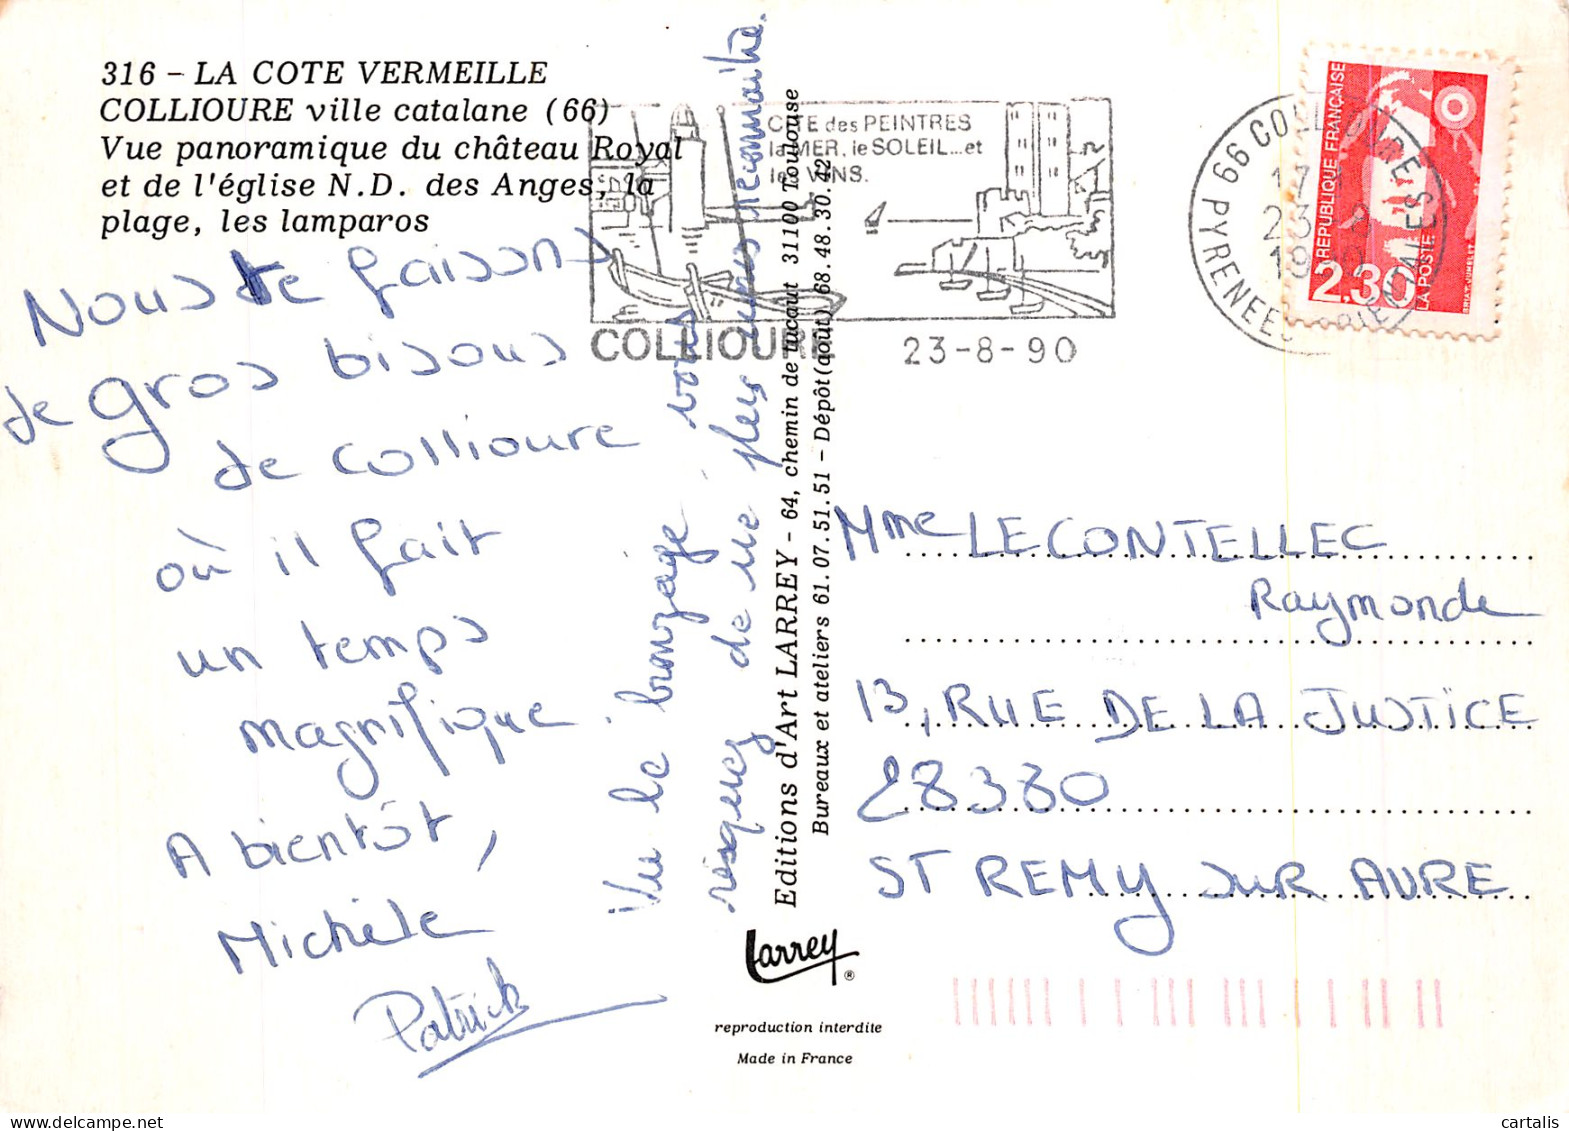 316 – LA COTE VERMEILLE
COLLIOURE ville catalane (66)
Vue panoramique du château Royal
et de l'église N.D. des Anges, la
plage, les lamparos
Nous te faisons
de gros bisous
de Collioure
où il fait
un temps
magnifique
A bientôt,
Michèle
Patrick
Vu le bronzage, vous
risquez de ne plus nous reconnaître.
CITE des PEINTRES
la MER, le SOLEIL...et
les VINS.
COLLIOURE
23-8-90
66 COLLIOURE
PYRENEES ORIENTALES
17
23-8
1990
REPUBLIQUE FRANÇAISE
2,30
LA POSTE
BRIAT-JUMELET
Editions d'Art LARREY - 64, chemin de tucaut 31100 Toulouse
Bureaux et ateliers 61.07.51.51 – Dépôt (août) 68.48.30.42
Larrey ®
reproduction interdite
Made in France
Mme LECONTELLEC
Raymonde
13, RUE DE LA JUSTICE
28380
ST REMY SUR AVRE
cartalis